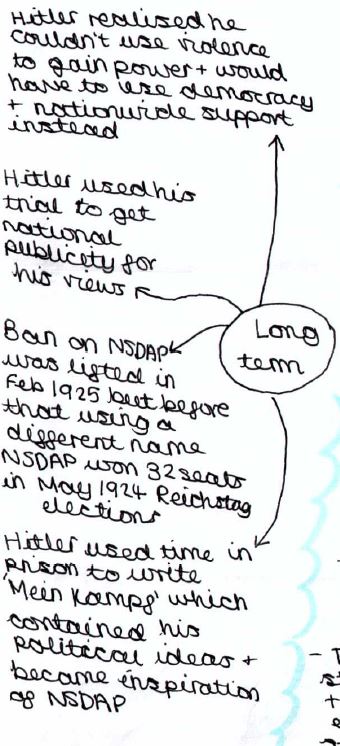 Hitler realised he
couldn't use violence
to gain power + would
have to use democracy
+ nationwide support
instead
Hitler used his
trial to get
national
publicity for
his views
Long
term
Ban on NSDAP
was lifted in
Feb 1925 but before
that using a
different name
NSDAP won 32 seats
in May 1924 Reichstag
elections
Hitler used time in
prison to write
'Mein Kampf' which
contained his
political ideas +
became inspiration
of NSDAP